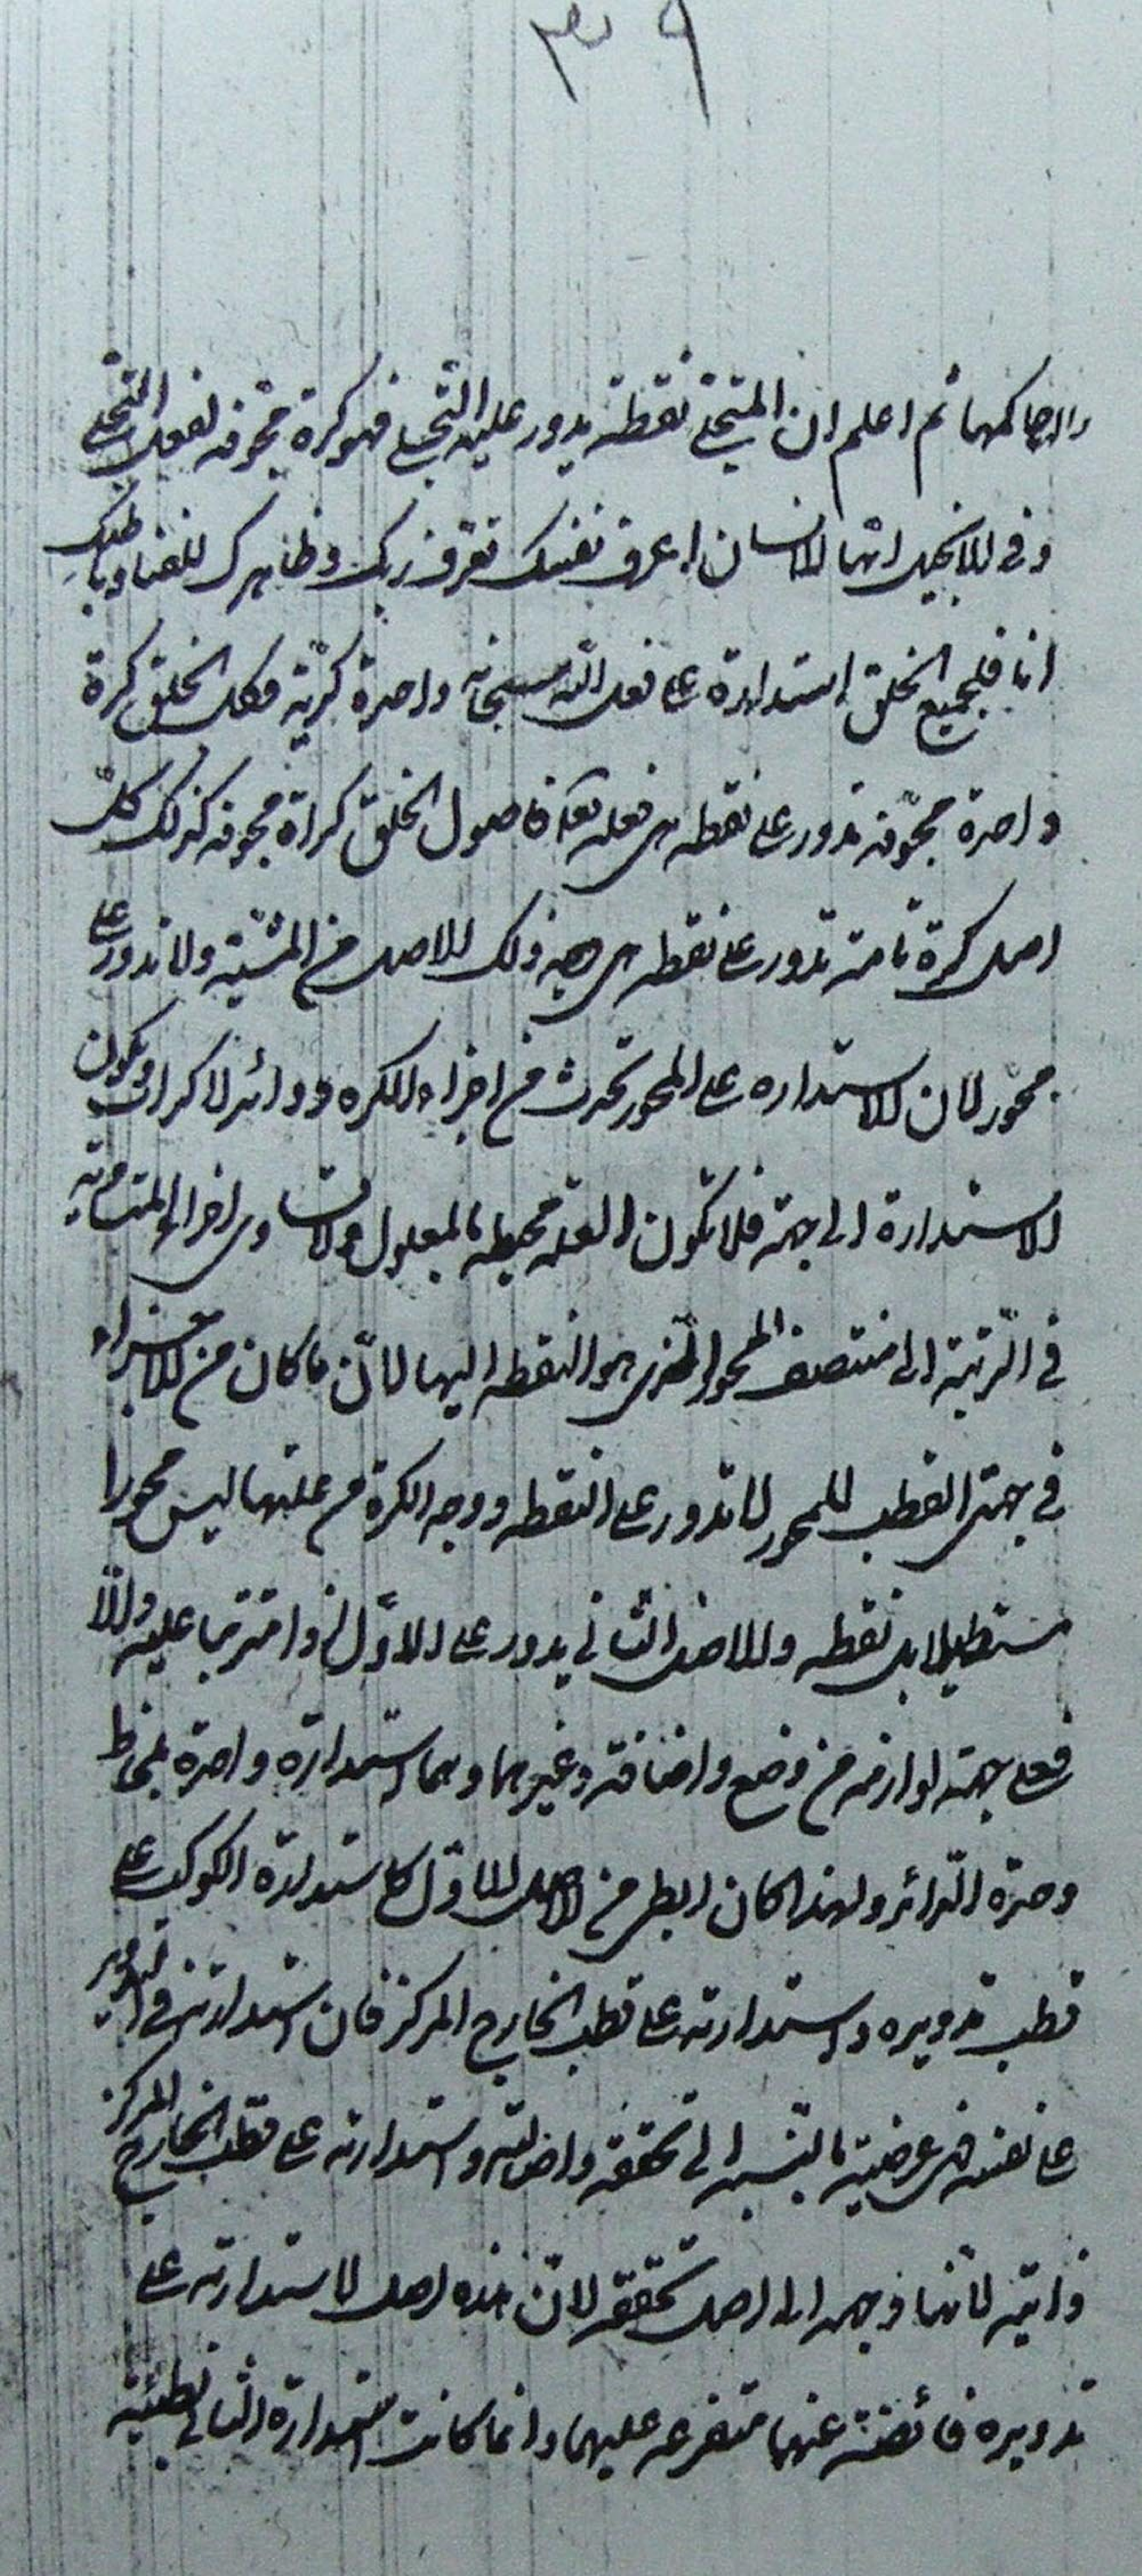 ٣٩
والاحاكمهما ثم اعلم ان المتجلي نقطة يدور عليه التجلي فهو كرة مجوفه لفعل المتجلي
وفى الانجيل ايها الانسان اعرف نفسك تعرف ربك وظاهرك للفناء وباطنك
انا فلجميع الخلق استدارة على فعل الله سبحانه واحدة كريّة فكل الخلق كرة
واحدة مجوّفه تدور على نقطه هى فعله تعالى فاصول الخلق كراة مجوفه كذلك كلّ
اصل كرة تامة تدور على نقطه هى وجه ذلك الاصل من المشيّه ولا تدور على
محور لان الاستداره على المحور تحدث من اجزاء الكره دوائر لا كرات وتكون
الاستدارة الى جهة فلا تكون العلة محيطه بالمعلول ولا تساوى اجزائها المتساويه
فى الرتبة الى منتصف المحور الذى هو النقطه اليها لانّ ما كان من الاجزاء
فى جهتى القطب للمحور لا تدور على النقطه ووجه الكرة من علتها ليس محورا
مستطيلا بل نقطه والاصل الثانى يدور على الاوّل ان ترتبا عليه والّا
فعلى جهة لوازمه من وضع واضافة وغيرهما وهما استدارة واحدة بلحاظ
وحدة الدائر ولهذا كان ابطى من الاصل الاوّل كاستدارة الكوكب على
قطب تدويره واستدارته على قطب الخارج المركز فان استدارته فى التدوير
على نفسه هى عرضيّه بالنسبه الى تحققه واصالته واستدارته على قطب الخارج المركز
ذاتيّه لانّها وجهه الى اصل تحققه لانّ هذه اصل لاستدارته على
تدويره فائضة عنها متفرعه عليها وانما كانت استدارة الثانى بطيئة